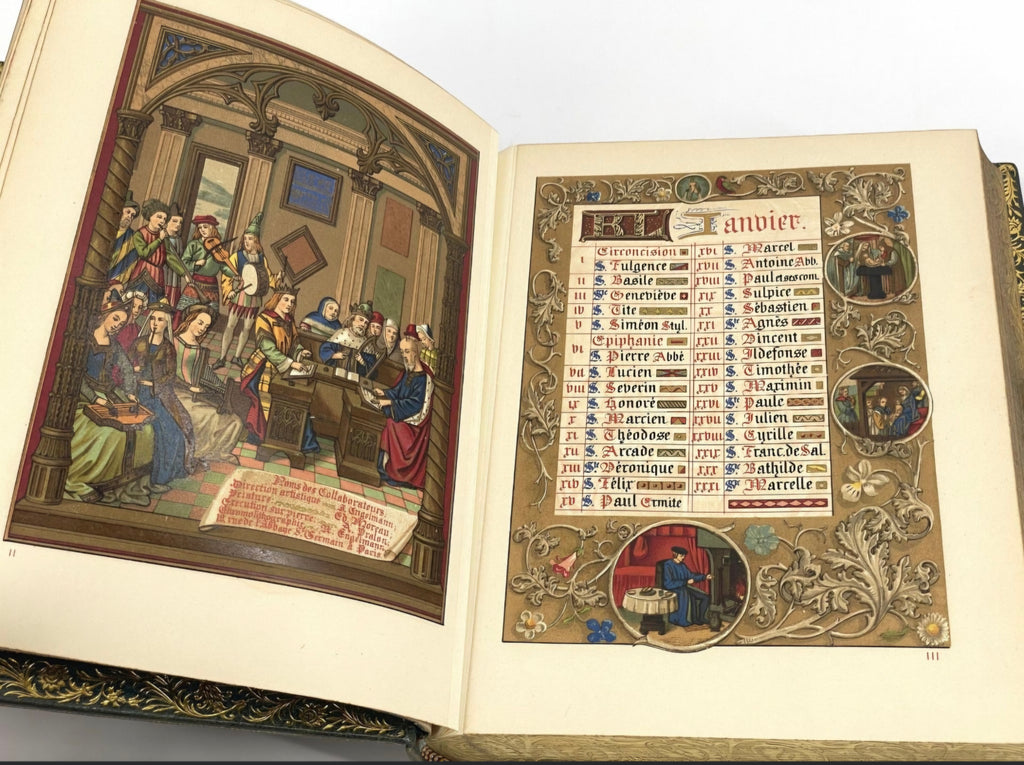 Noms des Collaborateurs.
Direction artistique
A. Engelmann,
Peinture
Exécution sur pierre
Chromolithographie
Engelmann,
Rue de l'Abbaye S. Germain à Paris.
II
KL Janvier.
I Circoncision
S. Fulgence
II S. Basile
III Ste Geneviève
IV S. Tite
V S. Siméon Styl.
VI Epiphanie
S. Pierre Abbé
VII S. Lucien
VIII S. Severin
IX S. Honoré
X S. Marcien
XI S. Théodose
XII S. Arcade
XIII Ste Véronique
XIV S. Félix
XV S. Paul Ermite
XVI S. Marcel
XVII S. Antoine Abb.
XVIII S. Paul et ses com.
XIX S. Sulpice
XX S. Sébastien
XXI Ste Agnès
XXII S. Vincent
XXIII S. Ildefonse
XXIV S. Timothée
XXV S. Maximin
XXVI Ste Paule
XXVII S. Julien
XXVIII S. Cyrille
XXIX S. Franc. de Sal.
XXX Ste Bathilde
XXXI Ste Marcelle
III